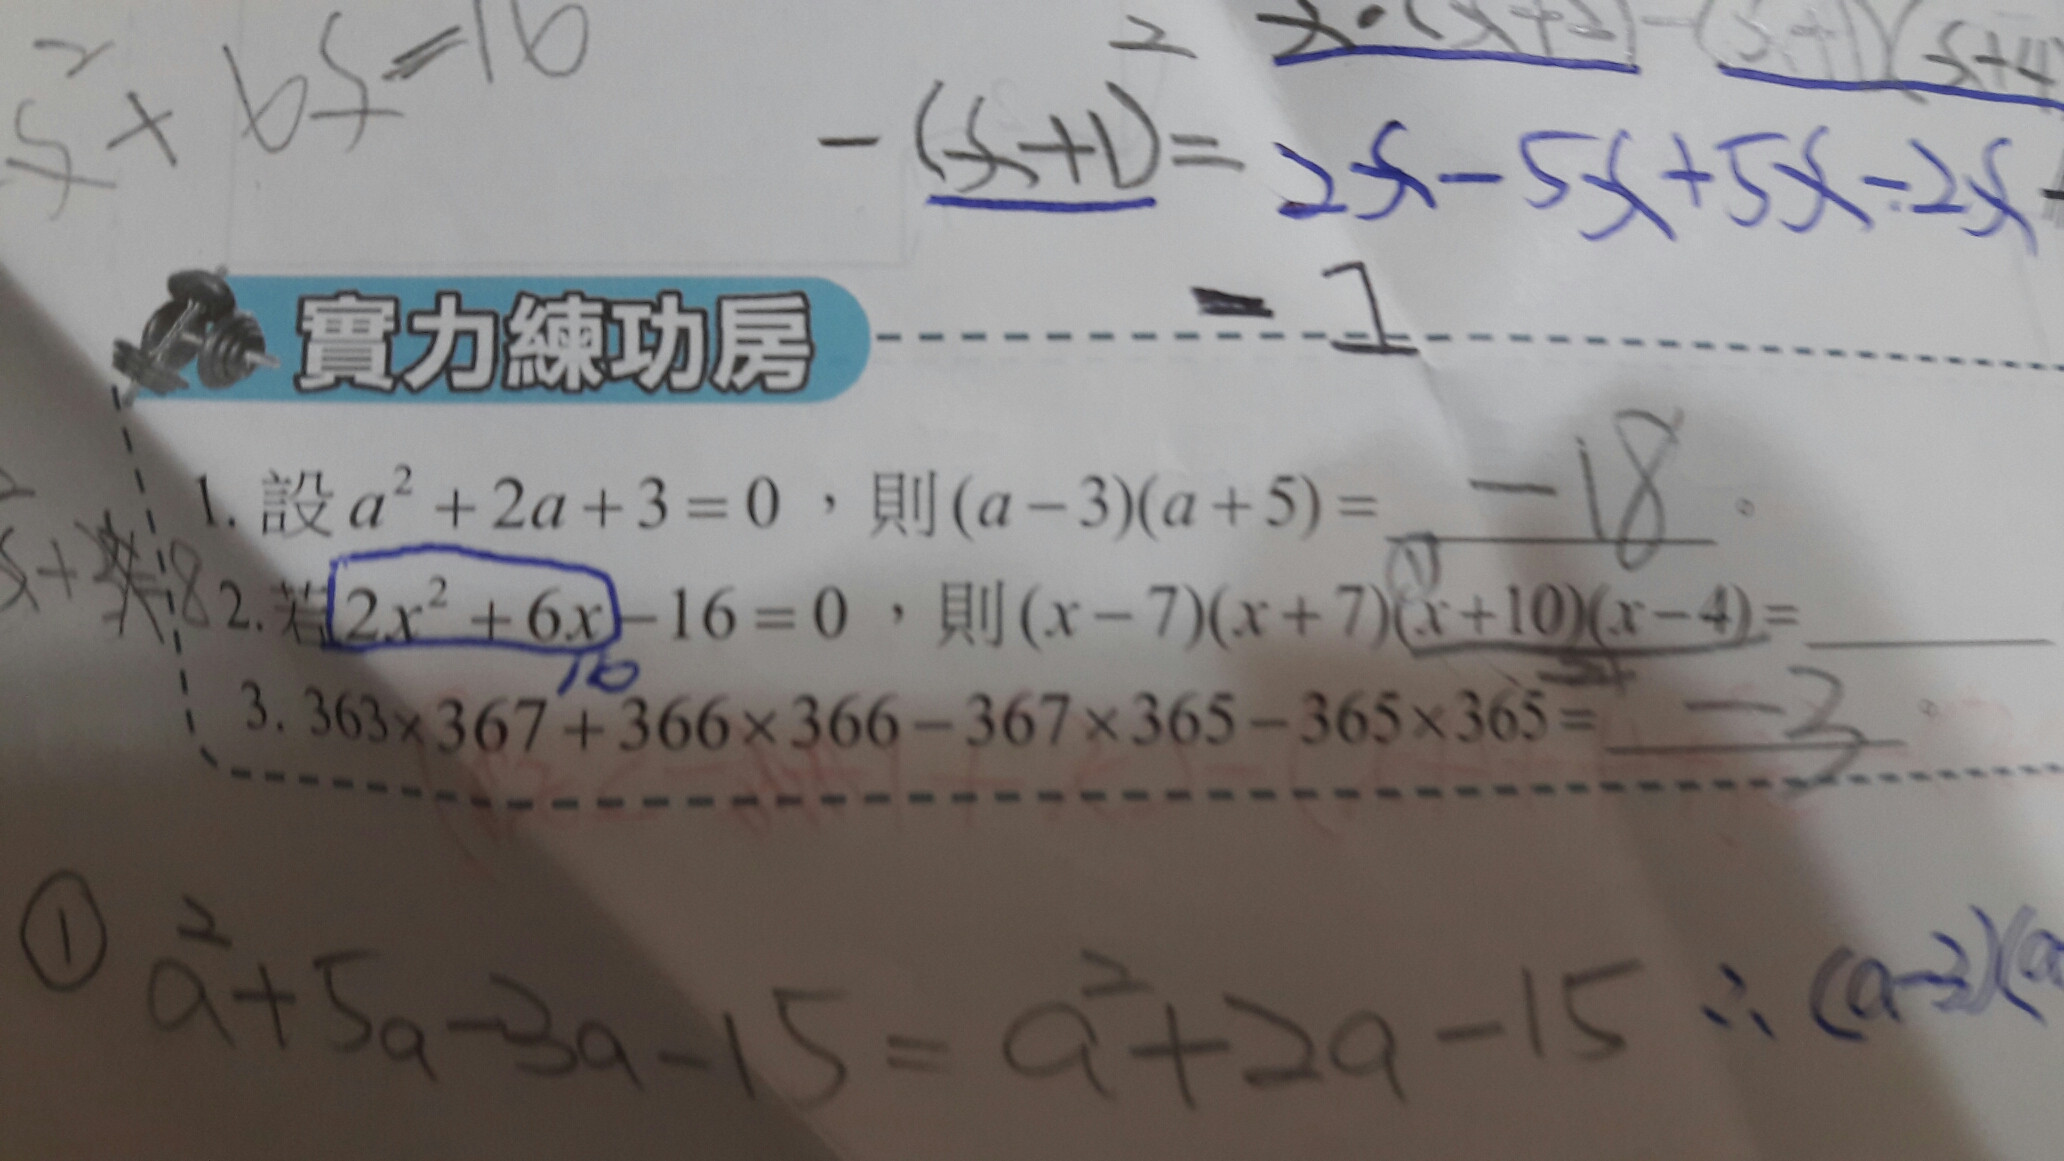 x² + 6x = 16
x·(x+2) - (x+1)(x+4)
-(x+1)² = 2x - 5x + 5x - 2x
- 1
實力練功房
1. 設 a² + 2a + 3 = 0 ,則 (a − 3)(a + 5) = -18 。
2. 若 2x² + 6x − 16 = 0 ,則 (x − 7)(x + 7)(x + 10)(x − 4) =
16
3. 363×367 + 366×366 − 367×365 − 365×365 = -3 。
① a² + 5a - 3a - 15 = a² + 2a - 15 ∴ (a-3)(a